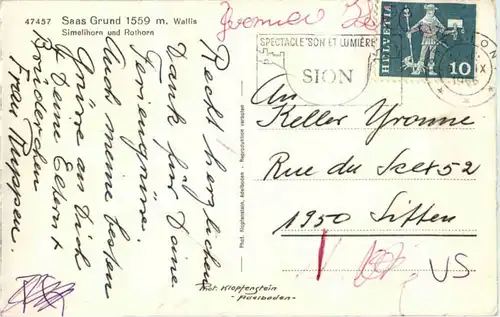 47457 Saas Grund 1559 m. Wallis
Simelihorn und Rothorn
Recht herzlichen
Dank für Deine
Feriengrüsse.
Auch meine besten
Grüsse an Dich
+ Deine Eltern +
Brüderchen
Frau Ruppen
Phot. Klopfenstein, Adelboden - Reproduktion verboten
SPECTACLE "SON ET LUMIÈRE"
SION
HELVETIA
10
An
Keller Yvonne
Rue du 52
1950 Sitten
Phot. Klopfenstein
- Adelboden -
US